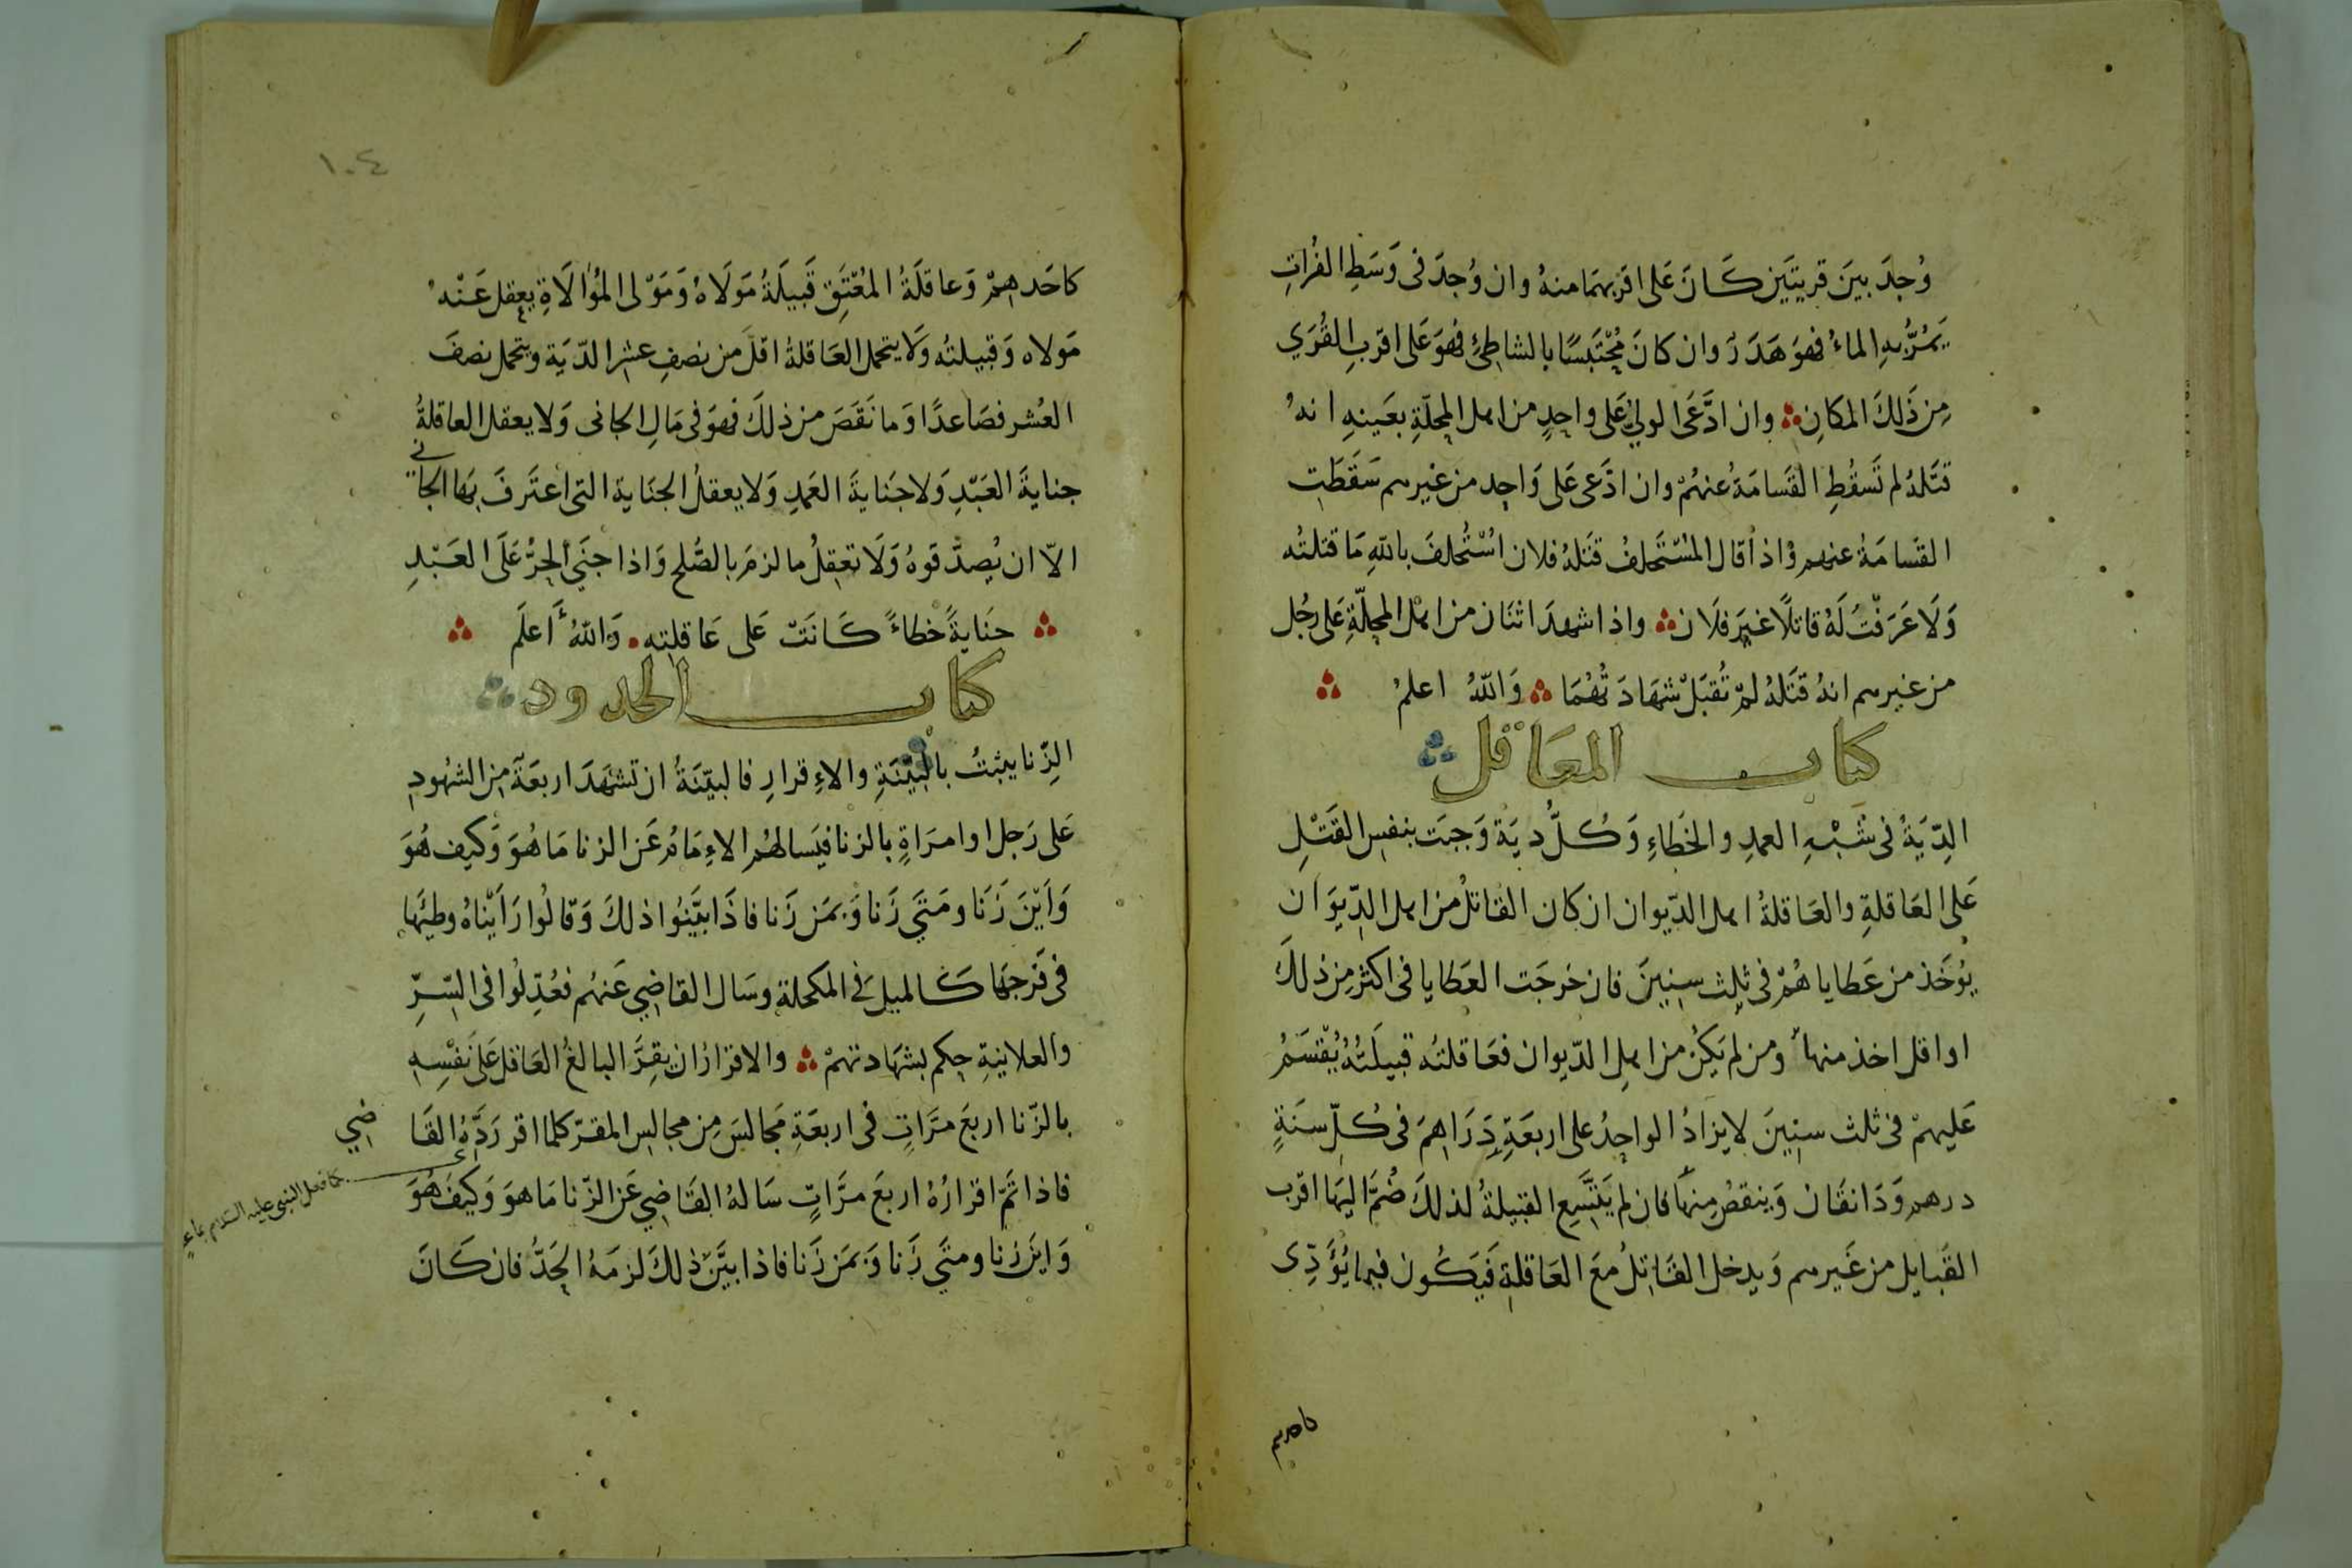 وُجِدَ بينَ قريتَين كَانَ عَلى اقربهمَا منهُ وان وُجدَ فى وَسَطِ الفُراتِ
يَمُرُّ بهِ الماءُ فهوَ هَدَرٌ وان كانَ مُحْتَبَسًا بالشاطئِ فهوَ عَلى اقربِ القُرَي
مِن ذَلكَ المكانِ وان ادَّعَى الوليّ عَلى واحِدٍ من اهل المحلّةِ بعَينهِ انهُ
قتَلهُ لم تَسقُطِ القَسامَةُ عنهُمْ وان ادَّعى عَلى وَاحِد من غيرهم سَقَطَتِ
القَسامَةُ عنهم وُاذا قال المُسْتَحلفُ قتَلهُ فلان اسْتُحلفَ باللهِ مَا قتلتُه
وَلَا عَرَفْتُ لَهُ قاتلًا غَيرَ فلَان واذا شهدَ اثنَان من اهل المحلّةِ عَلى رجُل
من غيرهم انهُ قتَلهُ لمْ تُقبَلْ شهَادَتُهُمَا وَاللهُ اعلمُ
كتاب المعَاقل
الدِّيَةُ فى شَبْهِ العمدِ والخَطاءِ وَكُلُّ ديَة وَجبَت بنفسِ القَتْلِ
عَلى العَاقلةِ والعَاقلةُ اهل الدّيوان ان كان القَاتلُ من اهل الدِّيوَان
يُوخَذ من عَطاياهُمْ فى ثلث سِنينَ فان خرجَت العَطايا فى اكثر مِن ذلكَ
او اقل اخذ منها ومن لم يَكُن من اهلِ الدّيوان فعَاقلتُه قبيلَتُهُ يُقْسَمُ
عَليهمْ فى ثلث سنِينَ لا يزادُ الواحِدُ على اربعَةِ دَرَاهمَ فى كُلّ سنَةٍ
درهم وَدَانقَان وَينقصُ منهَا فان لم يَتَّسِع القبيلةُ لذلكَ ضُمَّ اليهَا اقرب
القَبايل من غَيرهم وَيدخل القَاتلُ مَعَ العَاقلةِ فيَكُون فيما يُؤَدِّى
كاحدهم
١٠٤
كاحَدهمْ وَعاقلَةُ المُعْتَقِ قَبيلَةُ مَولَاهُ وَمَوْلى المُوَالَاةِ يعقل عَنْهُ
مَولاه وَقبيلتُه وَلَا يتحمل العَاقلةُ اقلّ من نصفِ عشر الدّيَة ويتحمل نصفَ
العُشر فصَاعدًا وَما نَقَصَ من ذلكَ فهوَ فى مَالِ الجانى وَلا يعقل العاقلةُ
جنايةَ العَبْدِ وَلا جَنايةَ العَمدِ وَلا يعقلُ الجنَاية التى اعتَرفَ بهَا الجانى
الاّ ان يُصدّقوهُ وَلَا تعقِلُ ما لزمَ بالصُّلح وَاذا جنَي الحرُّ عَلَى العَبْدِ
جنَايةً خطاءً كَانَتْ عَلى عَاقلتِه وَاللهُ اَعلَم
كتاب الحدود
الزّنا يثبتُ بالبيّنَةِ والاءِقرارِ فالبيّنَةُ ان تشهَدَ اربعَة من الشهُودِ
عَلى رَجل او امرَاةٍ بالزنا فيَسالهُم الاءِمَامُ عَن الزنا مَا هُوَ وَكيف هُوَ
وَاَيْنَ زَنَا ومَتَي زَنا وَبمَن زَنا فاذَا بيَّنُوا ذلكَ وَقالُوا رَاَيْناهُ وطيَها
فى فَرجهَا كَالميل فى المكحلةِ وسَال القاضِي عَنهُم فعُدِّلُوا فى السّرِّ
والعلانيةِ حكم بشهَادتهمْ والاقرارُ ان يقرَّ البالغُ العَاقل عَلَى نَفْسِهِ
بالزّنا اربعَ مرَّاتٍ فى اربعَةِ مَجالسَ مِن مجالِس المقرّ كلما اقر رَدَّهُ القَاضِي
فاذا تَمّ اقرارُهُ اربعَ مرَّاتٍ سَالهُ القَاضِي عَن الزّنا مَا هوَ وَكيفَ هُوَ
وَاين زنا ومتَي زَنا وَبمَن زَنا فاذا بيَّن ذلكَ لزمَهُ الحَدُّ فان كَانَ
كما فعل النبى عليه السلام بماعز